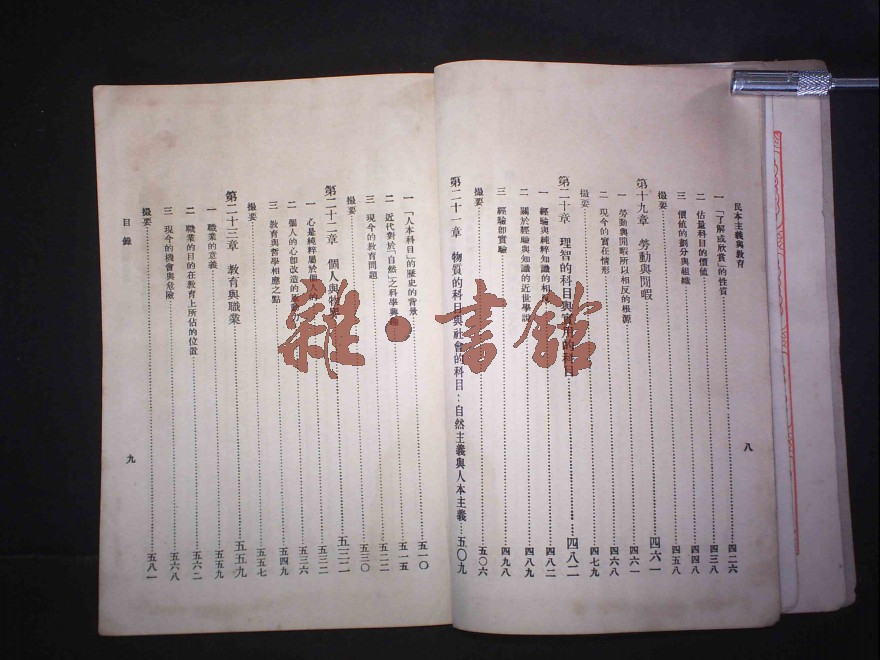 民本主義與教育
一 「了解或欣賞」的性質……四二六
二 估量科目的價值……四三八
三 價值的劃分與組織……四四五
撮要……四五八
第十九章 勞動與閒暇……四六一
一 勞動與閒暇所以相反的根源……四六一
二 現今的實在情形……四六八
撮要……四七九
第二十章 理智的科目與實用的科目……四八二
一 經驗與純粹知識的相反……四八二
二 關於經驗與知識的近世學說……四八九
三 經驗即實驗……四九八
撮要……五〇六
第二十一章 物質的科目與社會的科目：自然主義與人本主義……五〇九
八
一 「人本科目」的歷史的背景……五一〇
二 近代對於「自然」之科學興趣……五一五
三 現今的教育問題……五二二
撮要……五三〇
第二十二章 個人與物界……五三二
一 心是純粹屬於個人的……五三二
二 個人的心即改造的原動力……五三六
三 教育與哲學相應之點……五四九
撮要……五五七
第二十三章 教育與職業……五五九
一 職業的意義……五五九
二 職業的目的在教育上所佔的位置……五六二
三 現今的機會與危險……五六八
撮要……五八一
目錄
九
雜·書館